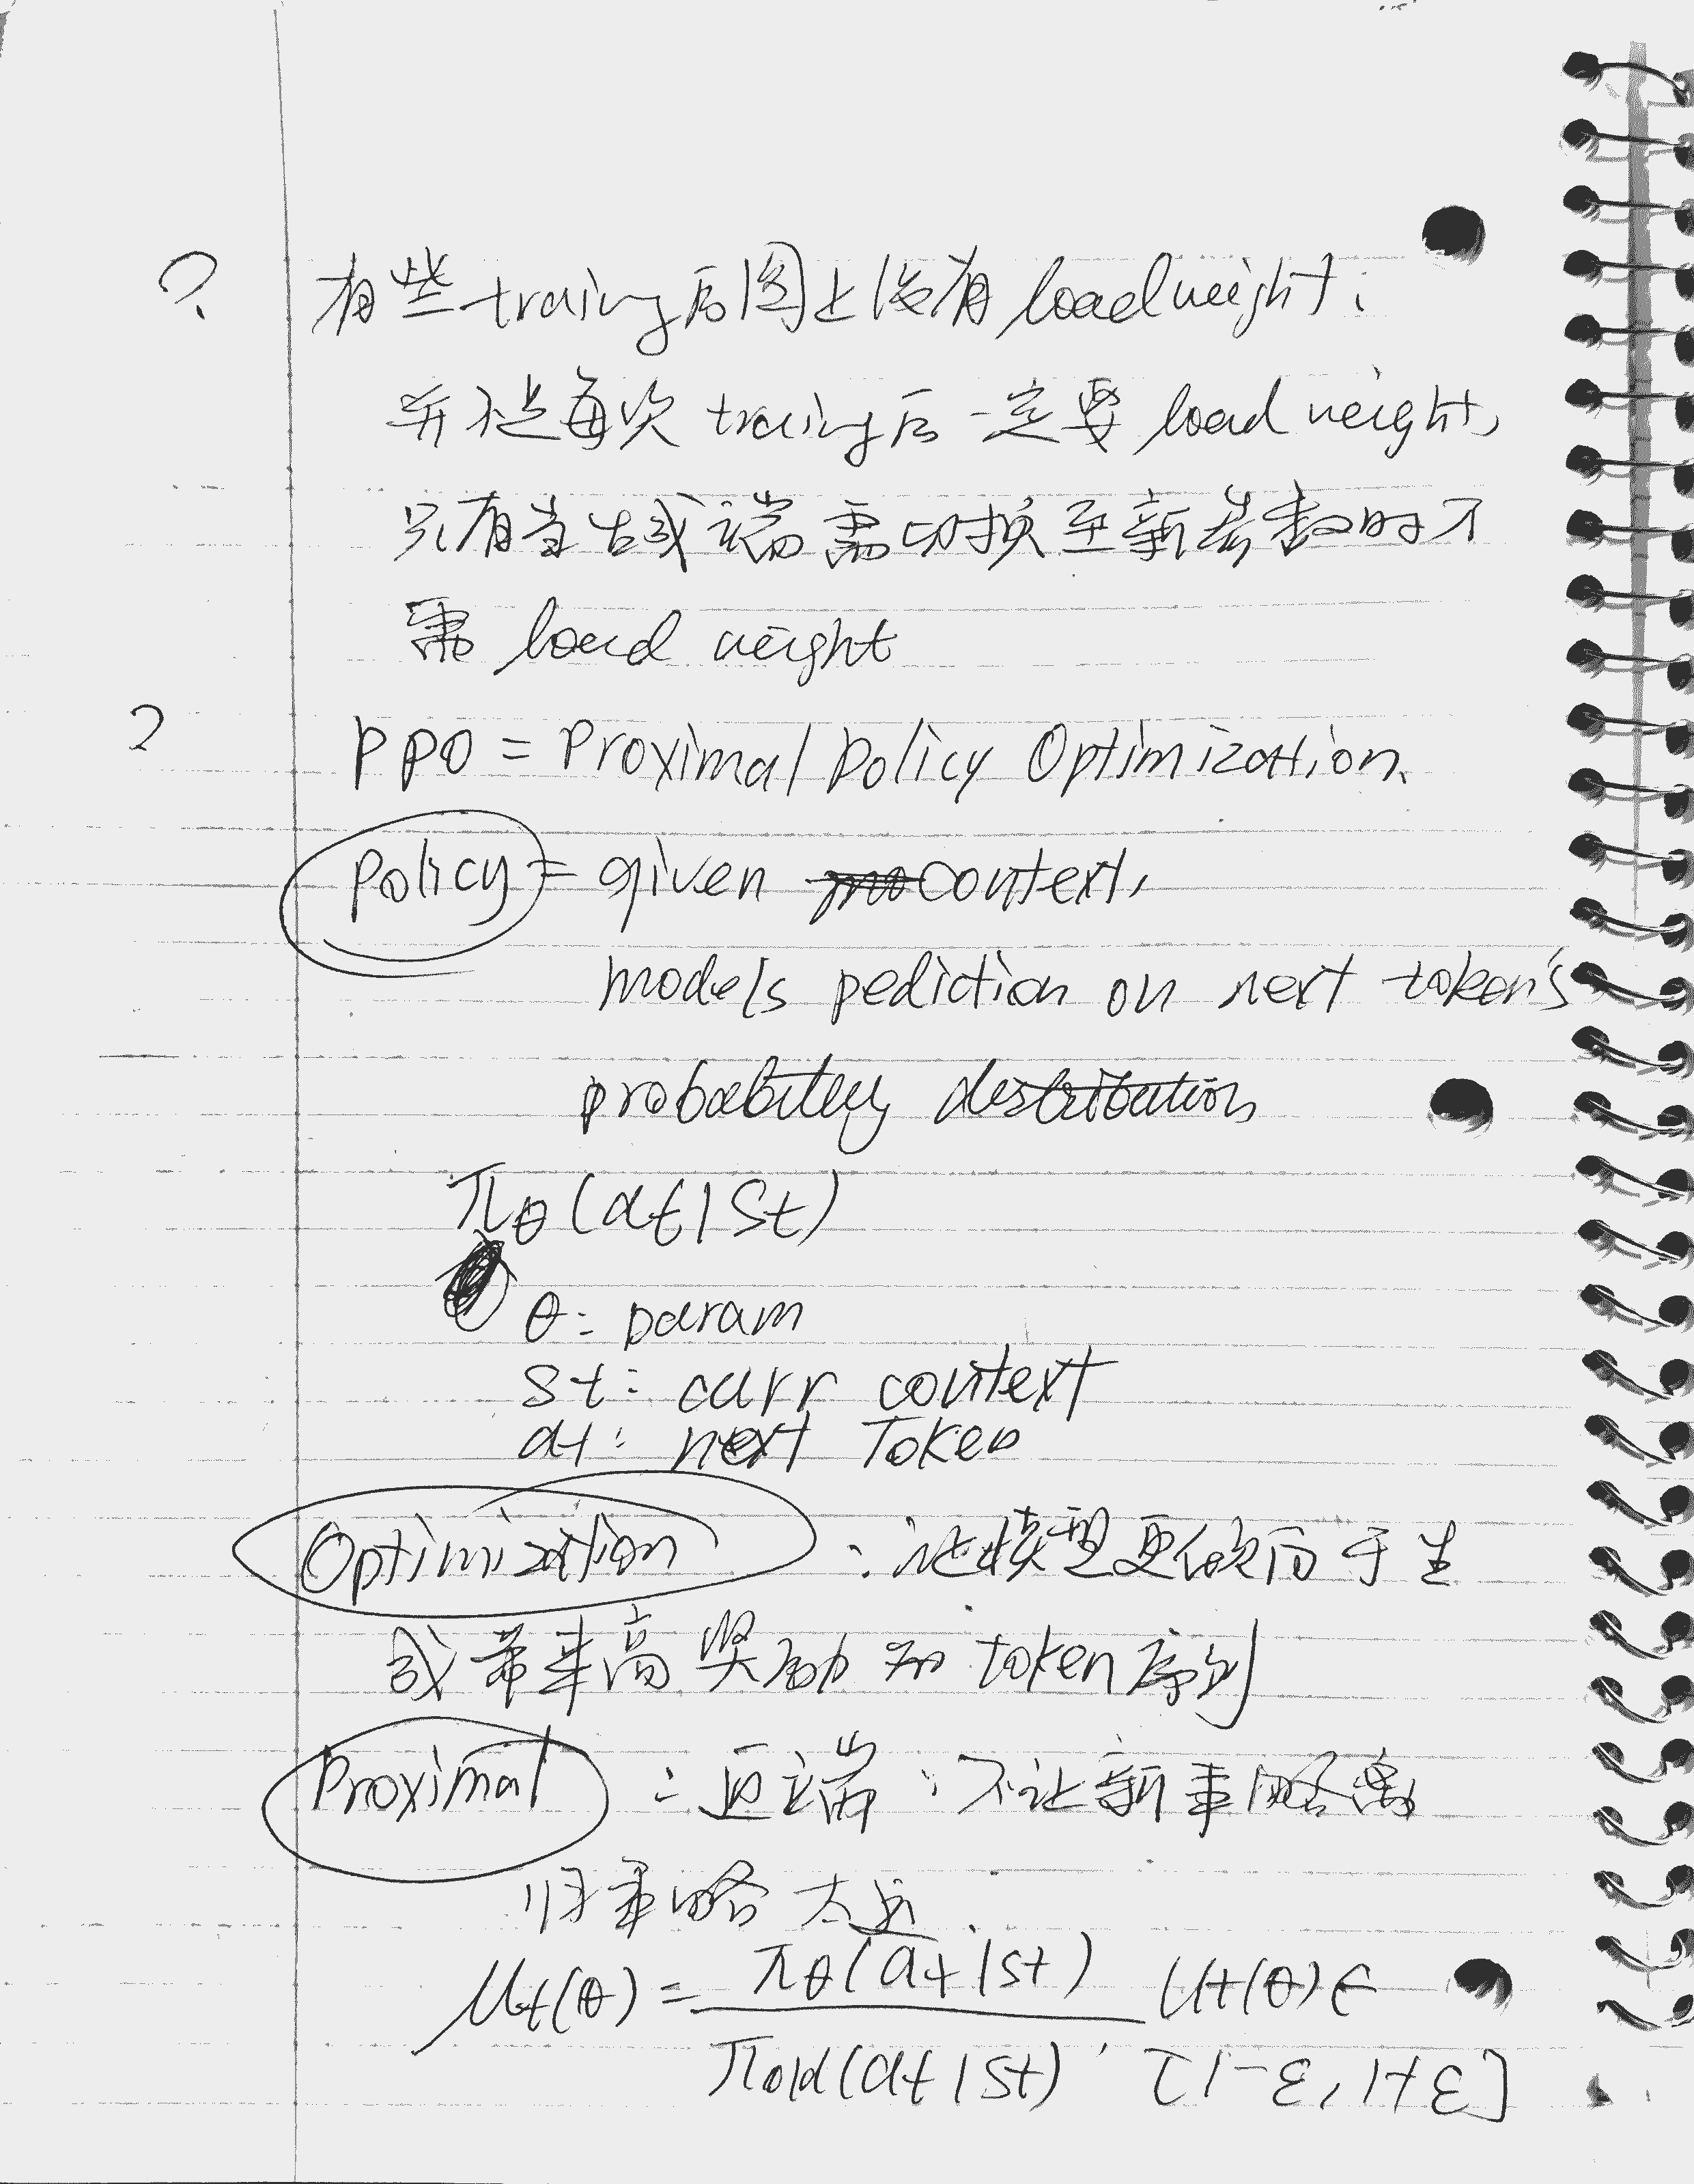 ? 有些 training 后图上没有 load weight.
并不是每次 training 后一定要 load weight,
只有当生成端需切换至新参数时才
需 load weight
? PPO = Proximal Policy Optimization.
Policy = given context,
models pediction on next token's
probability distribution
πθ(at|St)
θ: param
St: curr context
at: next Token
Optimization : 让模型更倾向于生
成带来高奖励的 token 序列
Proximal : 近端 : 不让新策略离
旧策略太远.
μt(θ) = πθ(at|St) / πold(at|St) , μt(θ) ∈
[1-ε, 1+ε]